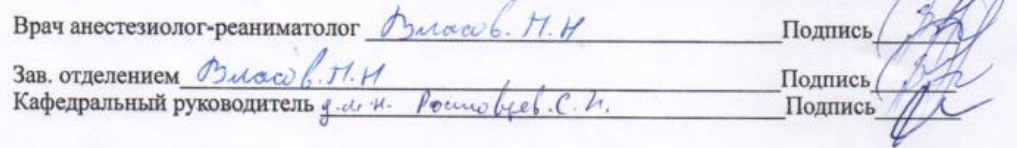 Врач анестезиолог-реаниматолог Власов. П. Н Подпись
Зав. отделением Власов. П. Н Подпись
Кафедральный руководитель д.м.н. Ростовцев. С. И. Подпись